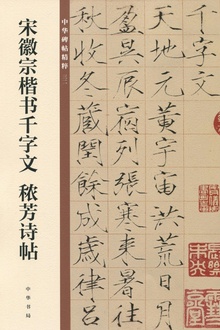 千字文
天地元黃宇宙洪荒日月
盈昃辰宿列張寒來暑往
秋收冬藏閏餘成歲律呂
中华碑帖精粹
宋徽宗楷书千字文 秾芳诗帖
中华书局